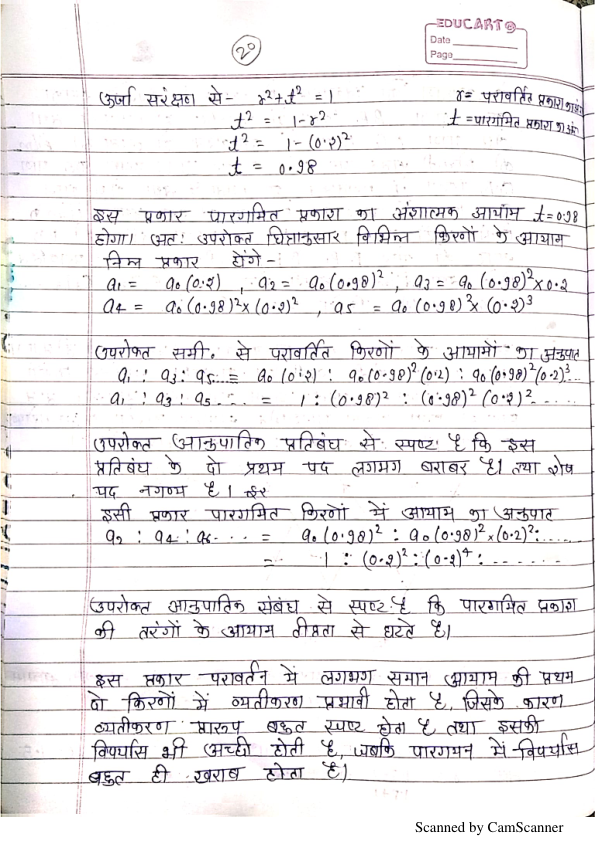 EDUCART
Date
Page
20
ऊर्जा संरक्षण से - r²+t² = 1
r = परावर्तित प्रकाश का
t² = 1-r²
t = पारगमित प्रकाश का
t² = 1-(0.2)²
t = 0.98
इस प्रकार पारगमित प्रकाश का अंशात्मक आयाम t = 0.98
होगा। अतः उपरोक्त चित्रानुसार विभिन्न किरणों के आयाम
निम्न प्रकार होंगे -
a₁ = a₀(0.2) , a₂ = a₀(0.98)² , a₃ = a₀(0.98)²×0.2
a₄ = a₀(0.98)²×(0.2)² , a₅ = a₀(0.98)²×(0.2)³
उपरोक्त समी. से परावर्तित किरणों के आयामों का अनुपात
a₁ : a₃ : a₅.... = a₀(0.2) : a₀(0.98)²(0.2) : a₀(0.98)²(0.2)³...
a₁ : a₃ : a₅..... = 1 : (0.98)² : (0.98)²(0.2)².....
उपरोक्त आनुपातिक प्रतिबंध से स्पष्ट है कि इस
प्रतिबंध के दो प्रथम पद लगभग बराबर है। तथा शेष
पद नगण्य है।
इसी प्रकार पारगमित किरणों में आयाम का अनुपात
a₂ : a₄ : a₆.... = a₀(0.98)² : a₀(0.98)²×(0.2)² : .....
= 1 : (0.2)² : (0.2)⁴ : .......
उपरोक्त आनुपातिक संबंध से स्पष्ट है कि पारगमित प्रकाश
की तरंगों के आयाम तीव्रता से घटते है।
इस प्रकार परावर्तन में लगभग समान आयाम की प्रथम
दो किरणों में व्यतीकरण प्रभावी होता है, जिसके कारण
व्यतीकरण प्रारूप बहुत स्पष्ट होता है तथा इसकी
विपर्यास भी अच्छी होती है, जबकि पारगमन में विपर्यास
बहुत ही खराब होता है।
Scanned by CamScanner